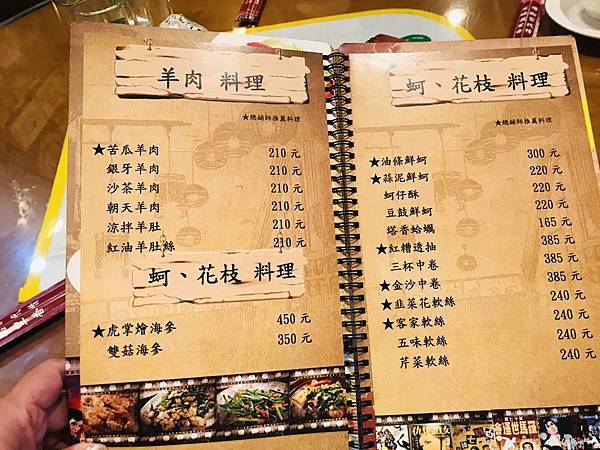 羊肉 料理
★總鋪師推薦料理
★苦瓜羊肉 210 元
銀牙羊肉 210 元
沙茶羊肉 210 元
朝天羊肉 210 元
涼拌羊肚 210 元
紅油羊肚絲 210 元
蚵、花枝 料理
★虎掌燴海參 450 元
雙菇海參 350 元
蚵、花枝 料理
★總鋪師推薦料理
★油條鮮蚵 300 元
★蒜泥鮮蚵 220 元
蚵仔酥 220 元
豆鼓鮮蚵 220 元
塔香蛤蠣 165 元
★紅糟透抽 385 元
三杯中卷 385 元
★金沙中卷 385 元
★韭菜花軟絲 240 元
★客家軟絲 240 元
五味軟絲 240 元
芹菜軟絲 240 元